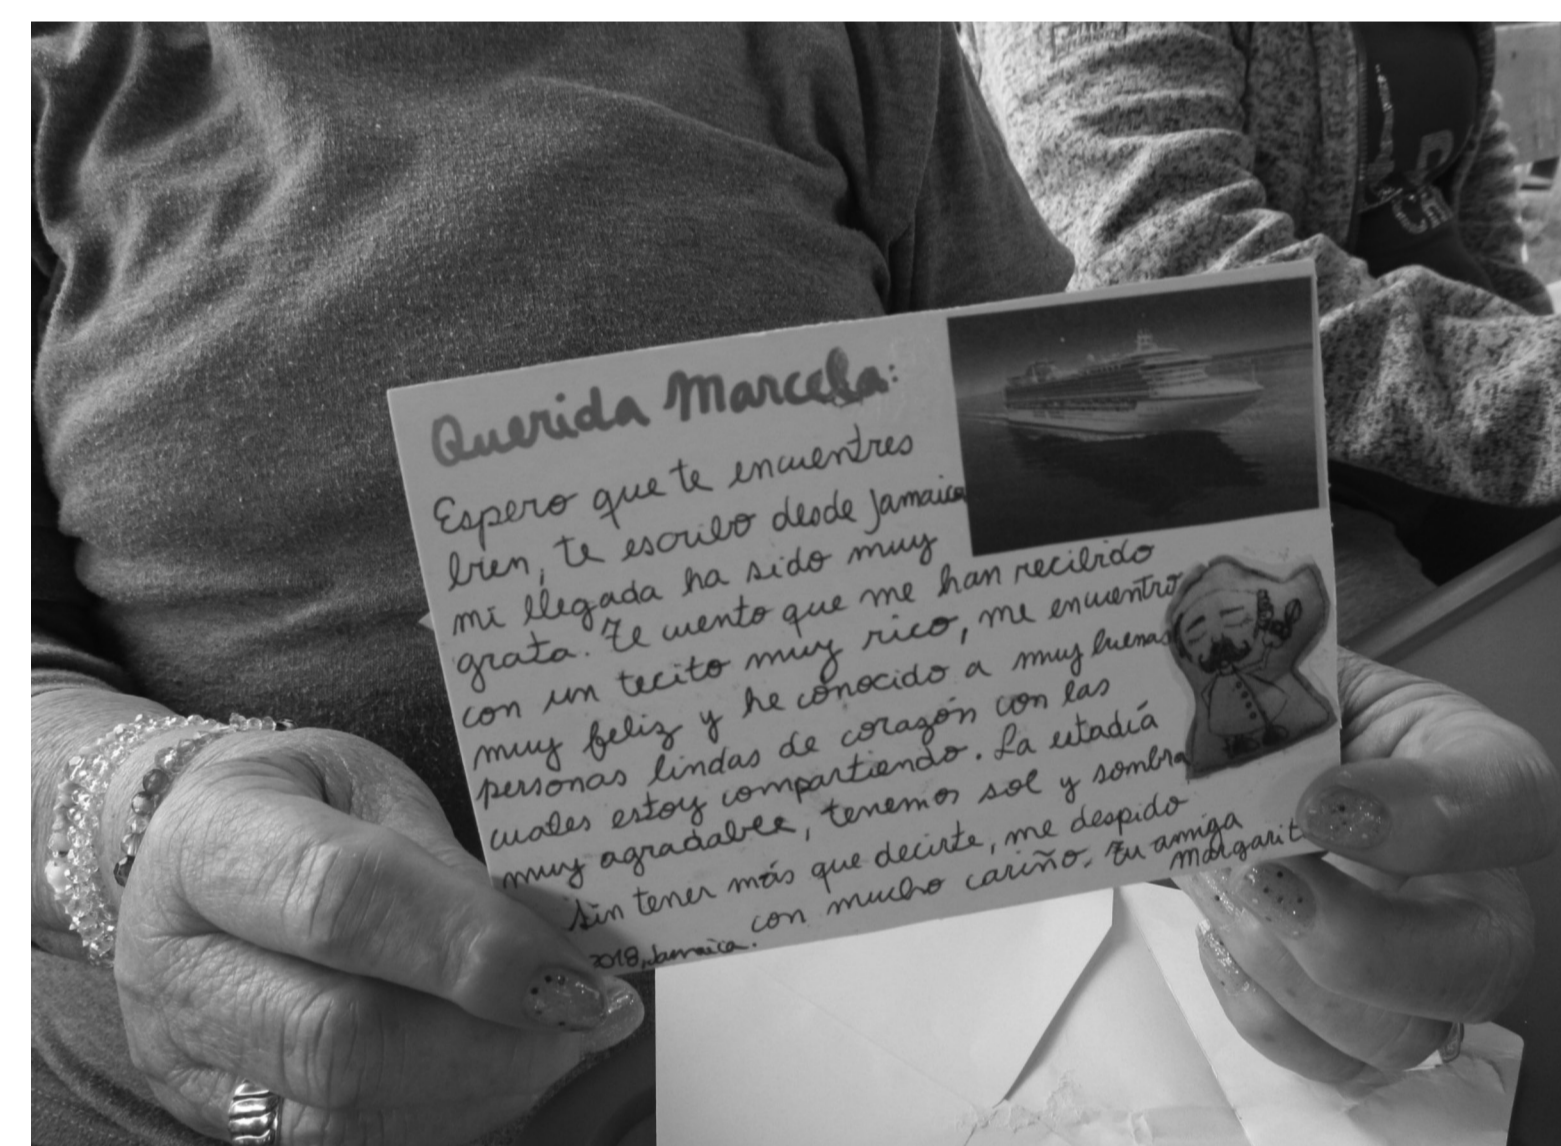 Querida Marcela:
Espero que te encuentres
bien, te escribo desde Jamaica
mi llegada ha sido muy
grata. Te cuento que me han recibido
con un tecito muy rico, me encuentro
muy feliz y he conocido a muy buenas
personas lindas de corazón con las
cuales estoy compartiendo. La estadía
muy agradable, tenemos sol y sombra
Sin tener más que decirte, me despido
con mucho cariño. Tu amiga
Margarit
2018, Jamaica.